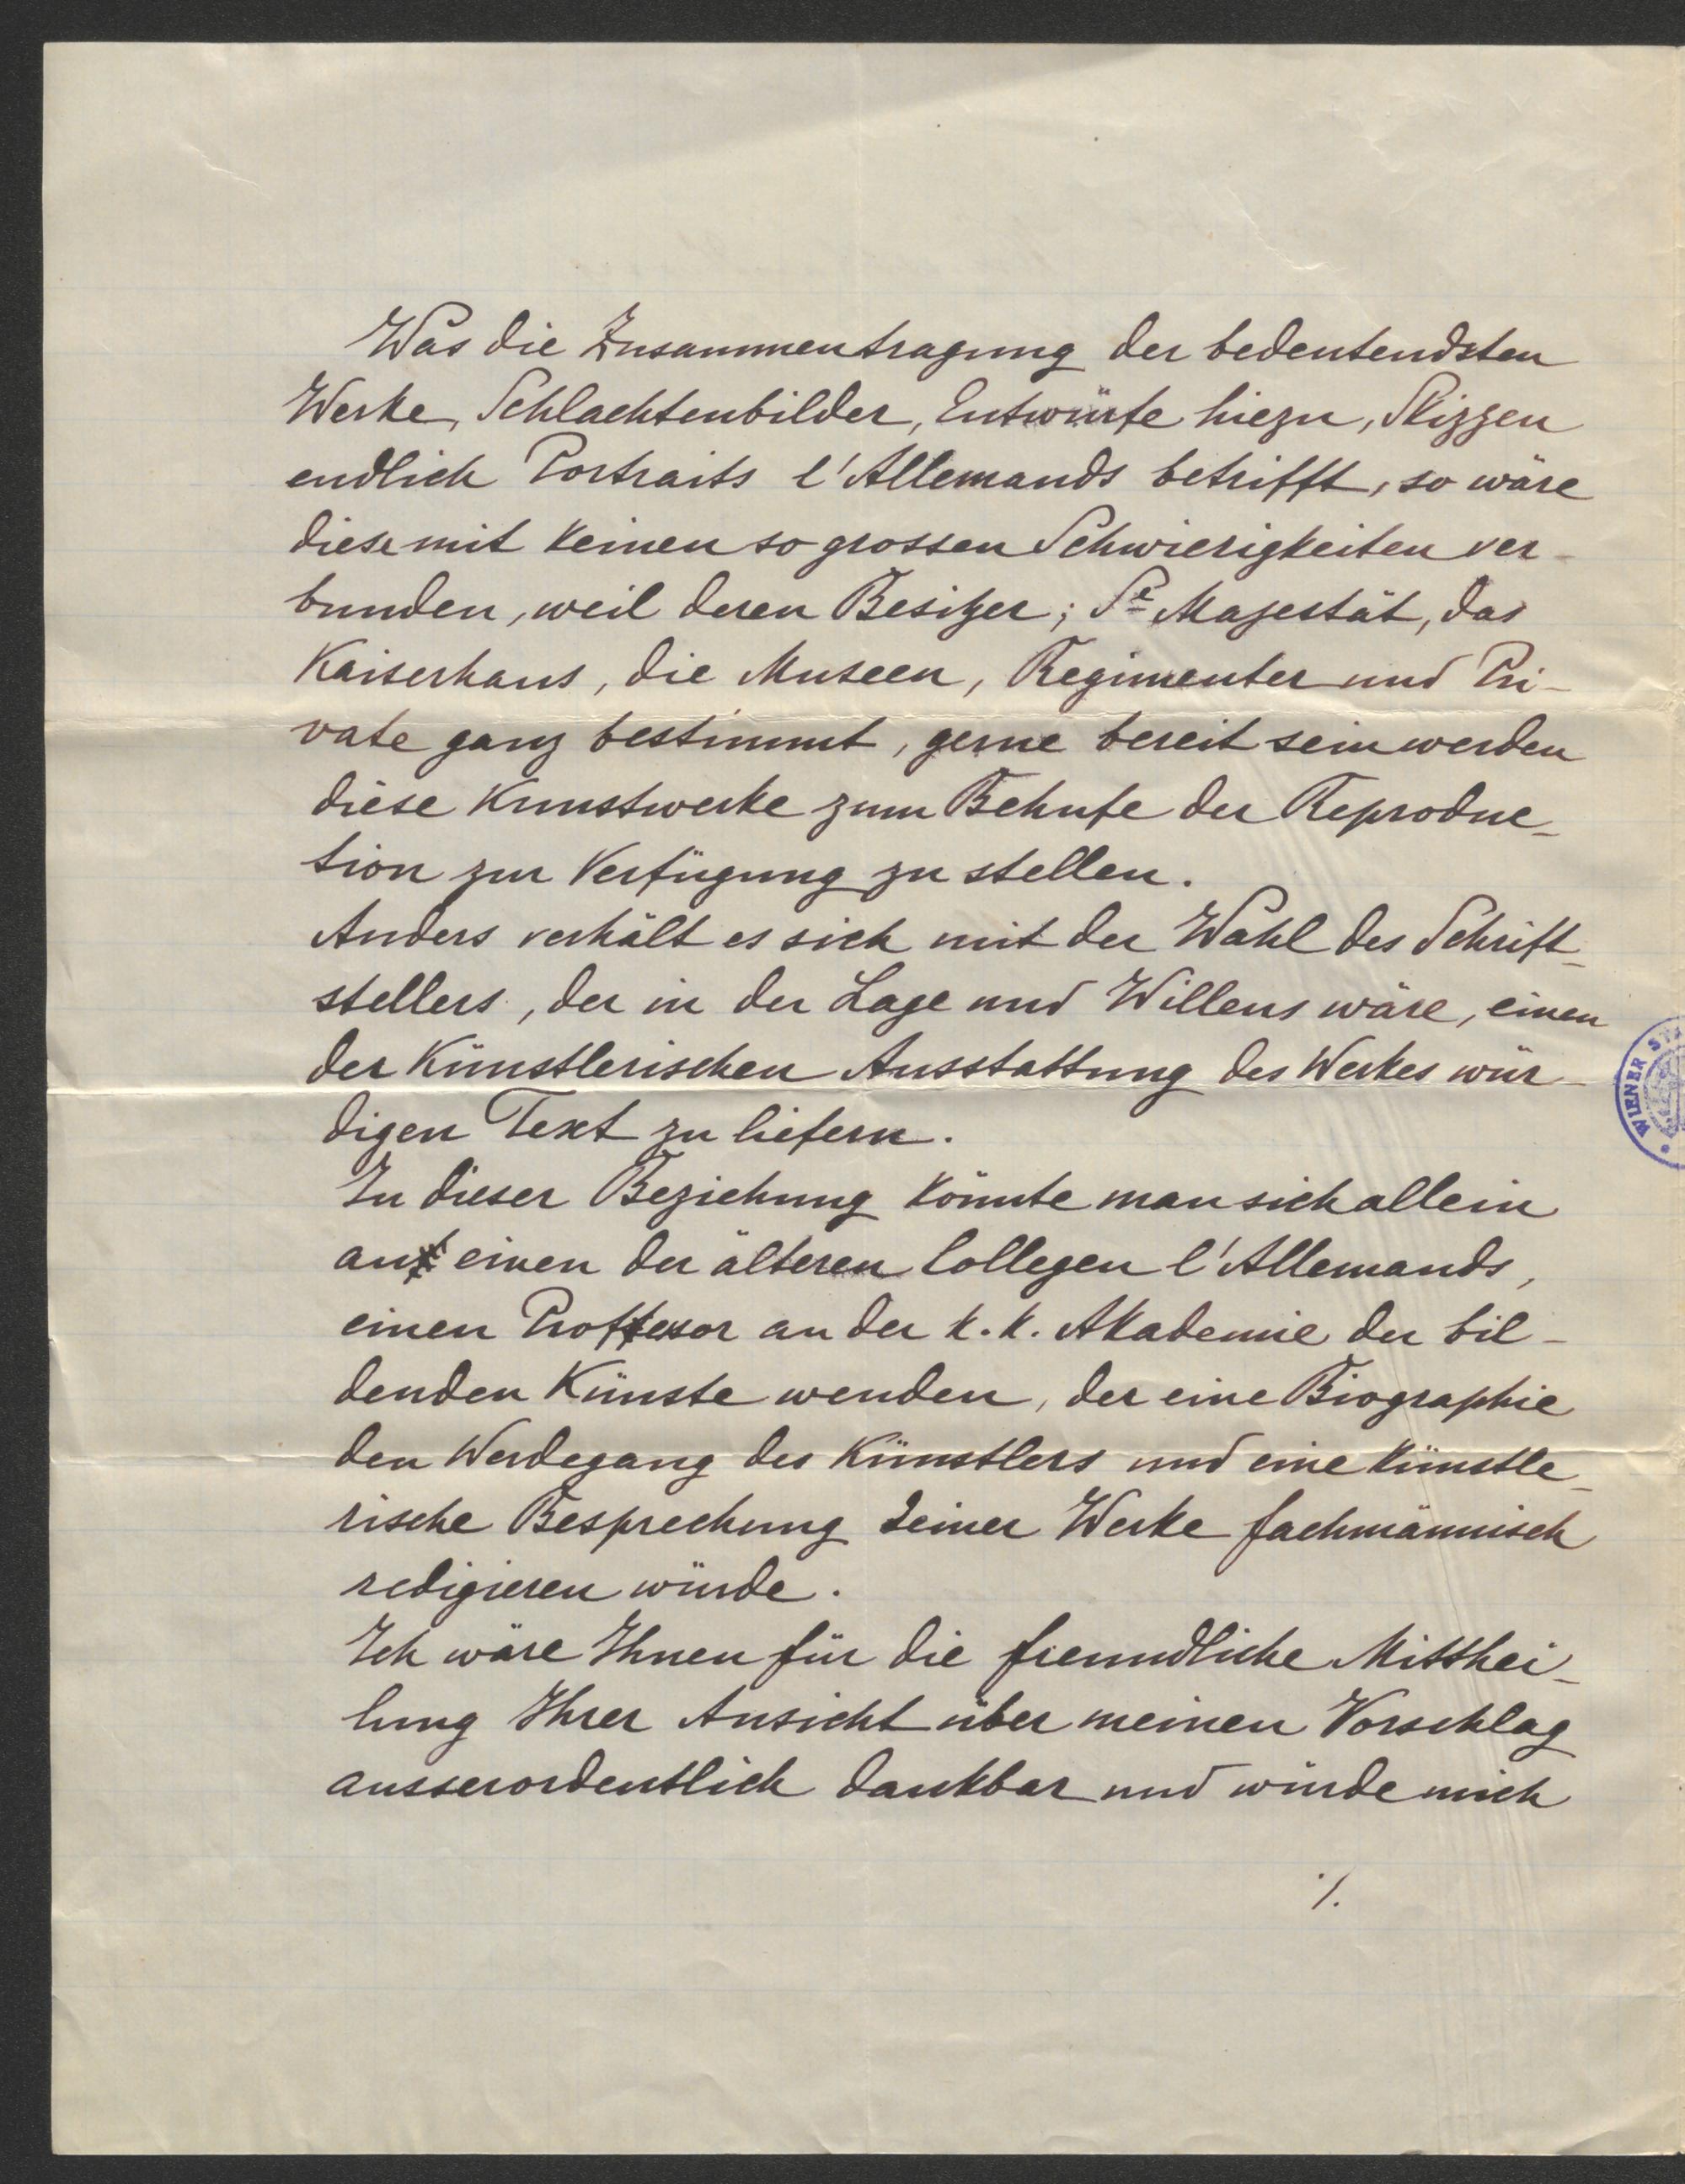 Was die Zusammentragung der bedeutendsten
Werke, Schlachtenbilder, Entwürfe hiezu, Skizzen
endlich Portraits l'Allemands betrifft, so wäre
diese mit keinen so grossen Schwierigkeiten ver-
bunden, weil deren Besitzer; Se Majestät, das
Kaiserhaus, die Museen, Regimenter und Pri-
vate ganz bestimmt, gerne bereit sein werden
diese Kunstwerke zum Behufe der Reproduc-
tion zur Verfügung zu stellen.
Anders verhält es sich mit der Wahl des Schrift-
stellers, der in der Lage und Willens wäre, einen
der Künstlerischen Ausstattung des Werkes wür-
digen Text zu liefern.
In dieser Beziehung könnte man sich allein
an einen der älteren Collegen l'Allemands,
einen Professor an der k.k. Akademie der bil-
denden Künste wenden, der eine Biographie
den Werdegang des Künstlers und eine künstle-
rische Besprechung seiner Werke fachmännisch
redigieren würde.
Ich wäre Ihnen für die freundliche Mitthei-
lung Ihrer Ansicht über meinen Vorschlag
ausserordentlich dankbar und würde mich
./.
WIENER